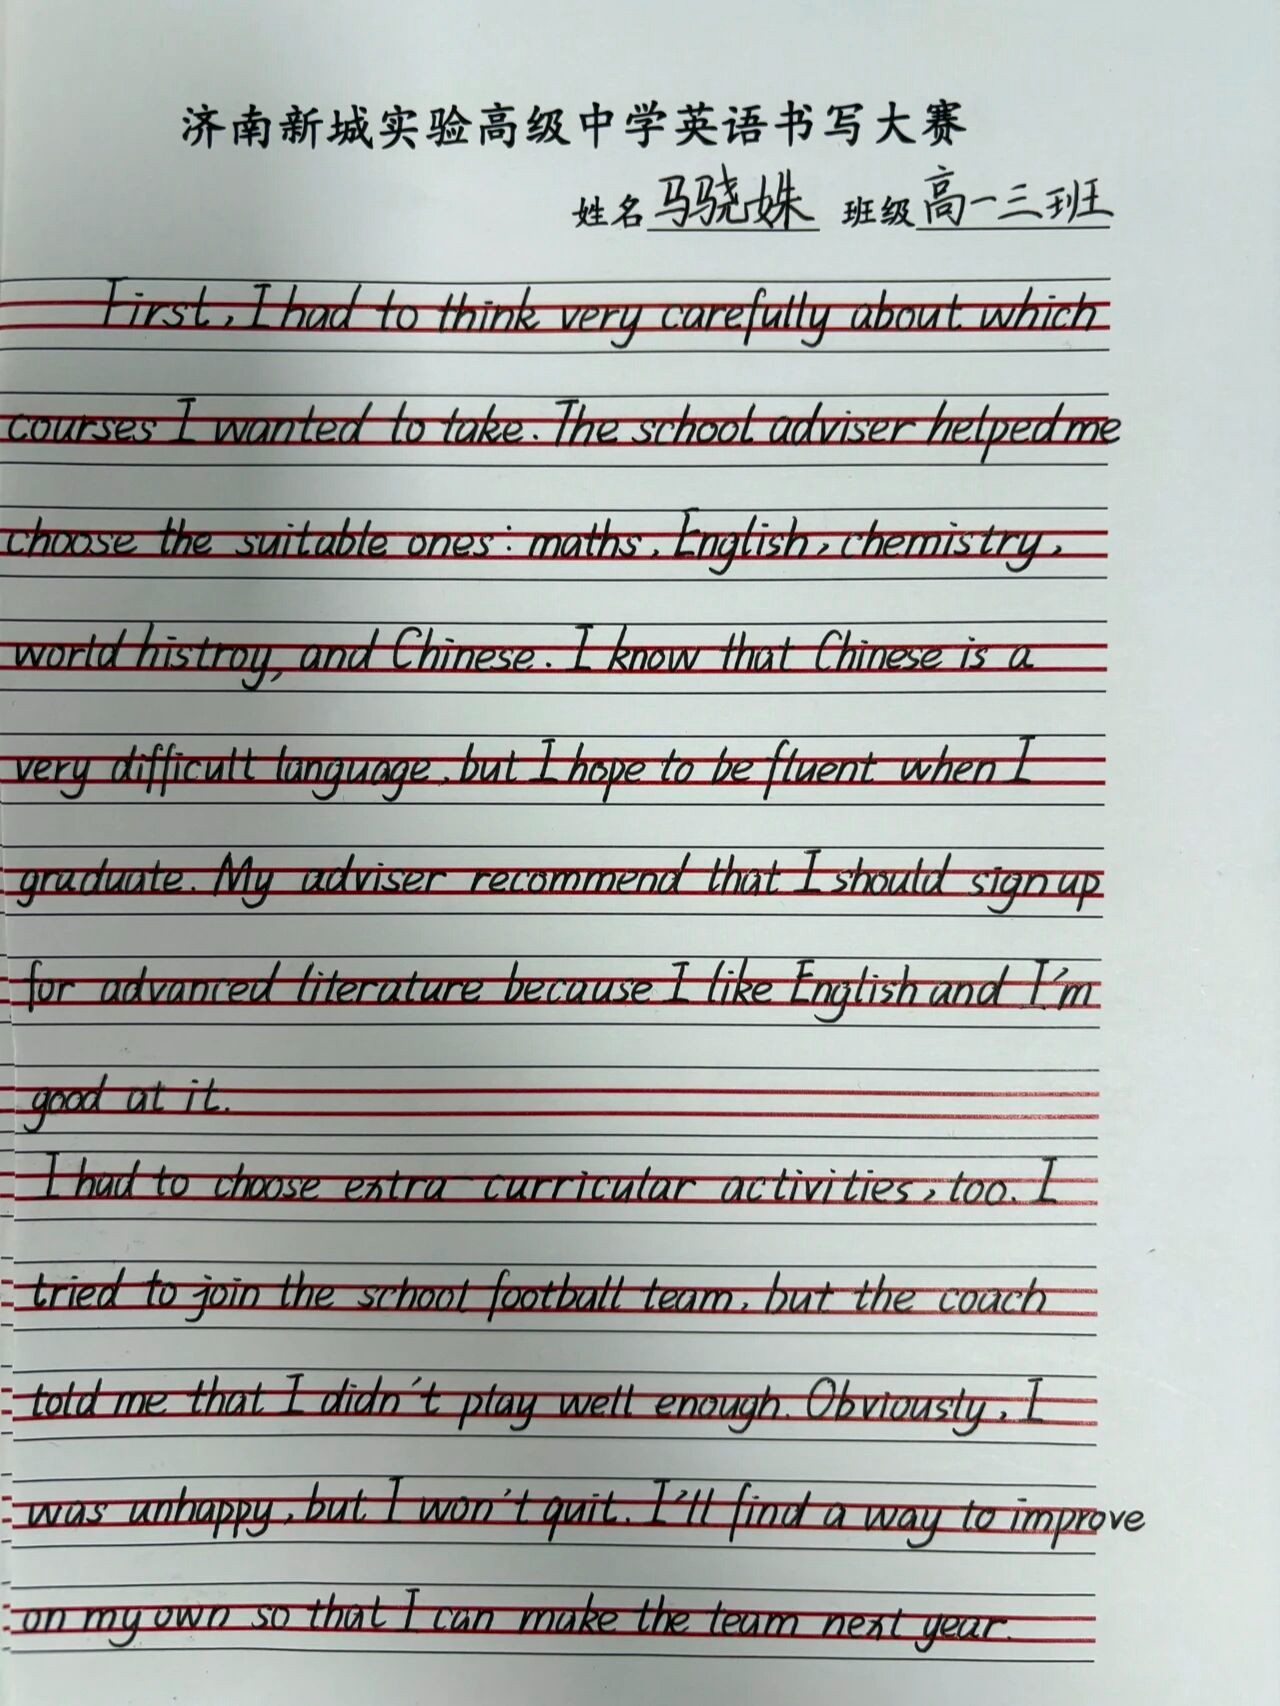 济南新城实验高级中学英语书写大赛
姓名马骁姝 班级高一三班
First, I had to think very carefully about which
courses I wanted to take. The school adviser helped me
choose the suitable ones: maths, English, chemistry,
world histroy, and Chinese. I know that Chinese is a
very difficult language, but I hope to be fluent when I
graduate. My adviser recommend that I should sign up
for advanced literature because I like English and I'm
good at it.
I had to choose extra-curricular activities, too. I
tried to join the school football team, but the coach
told me that I didn't play well enough. Obviously, I
was unhappy, but I won't quit. I'll find a way to improve
on my own so that I can make the team next year.